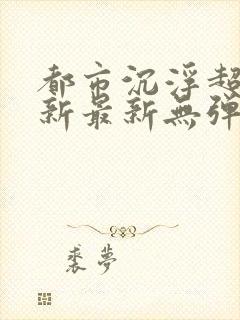 都市沉浮超
新最新無弹
裘梦